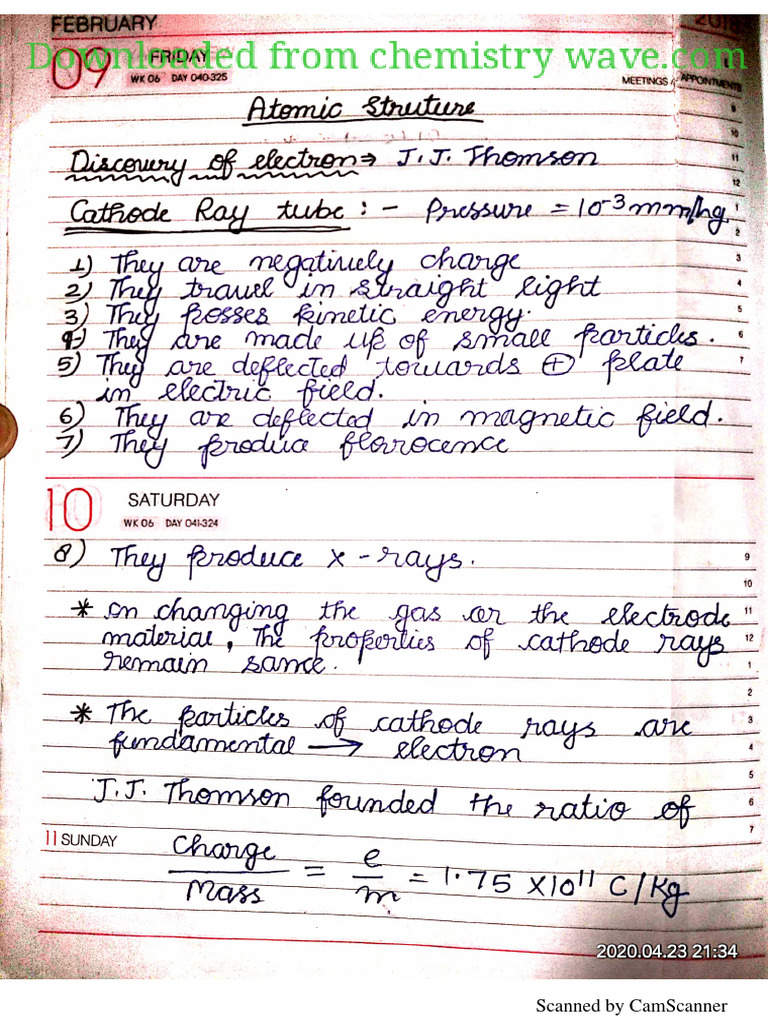 FEBRUARY 2018
Downloaded from chemistry wave.com
09 FRIDAY
WK 06 DAY 040-325
MEETINGS / APPOINTMENTS
Atomic Struture
Discovery of electron ⇒ J.J. Thomson
Cathode Ray tube : - Pressure = 10⁻³ mm/hg
1) They are negatively charge
2) They travel in straight light
3) They posses kinetic energy.
4) They are made up of small particles.
5) They are deflected towards ⊕ plate
in electric field.
6) They are deflected in magnetic field.
7) They produce florocence
10 SATURDAY
WK 06 DAY 041-324
8) They produce x-rays.
* on changing the gas or the electrode
material, The properties of cathode rays
remain same.
* The particles of cathode rays are
fundamental → electron
J.J. Thomson founded the ratio of
11 SUNDAY
Charge/Mass = e/m = 1.75 X10¹¹ C/Kg
2020.04.23 21:34
Scanned by CamScanner